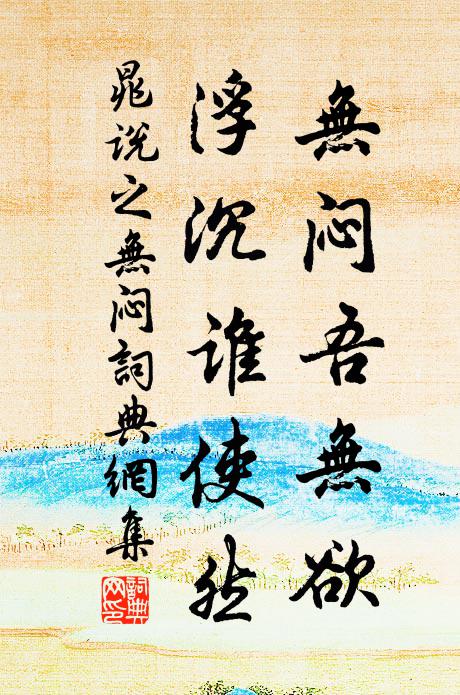 無悶吾無欲
浮沉誰使然
晁說之無悶詞典網集
詞典網印